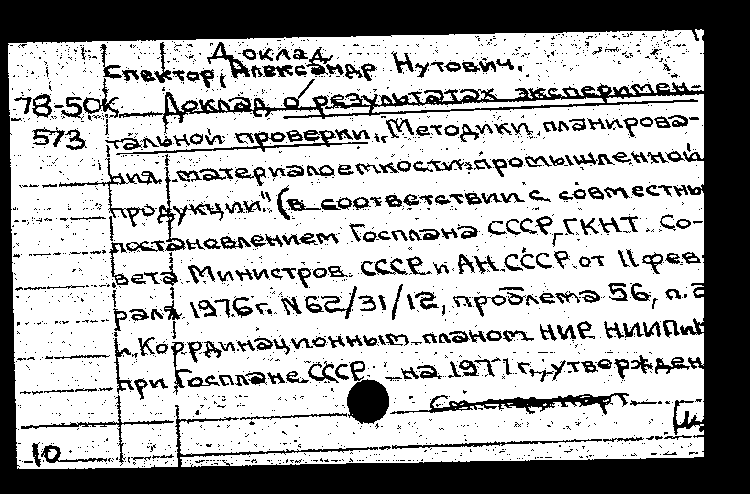 Доклад
Спектор, Александр Нутович.
78-50К Доклад о результатах эксперимен-
573 тальной проверки „Методики планирова-
ния материалоемкости промышленной
продукции" (в соответствии с совместны
постановлением Госплана СССР, ГКНТ Со-
вета Министров СССР и АН СССР от 11 фев-
раля 1976 г. N 62/31/12, проблема 56, п. 2
и Координационным планом НИР НИИПиН
при Госплане СССР на 1977 г., утвержден
10